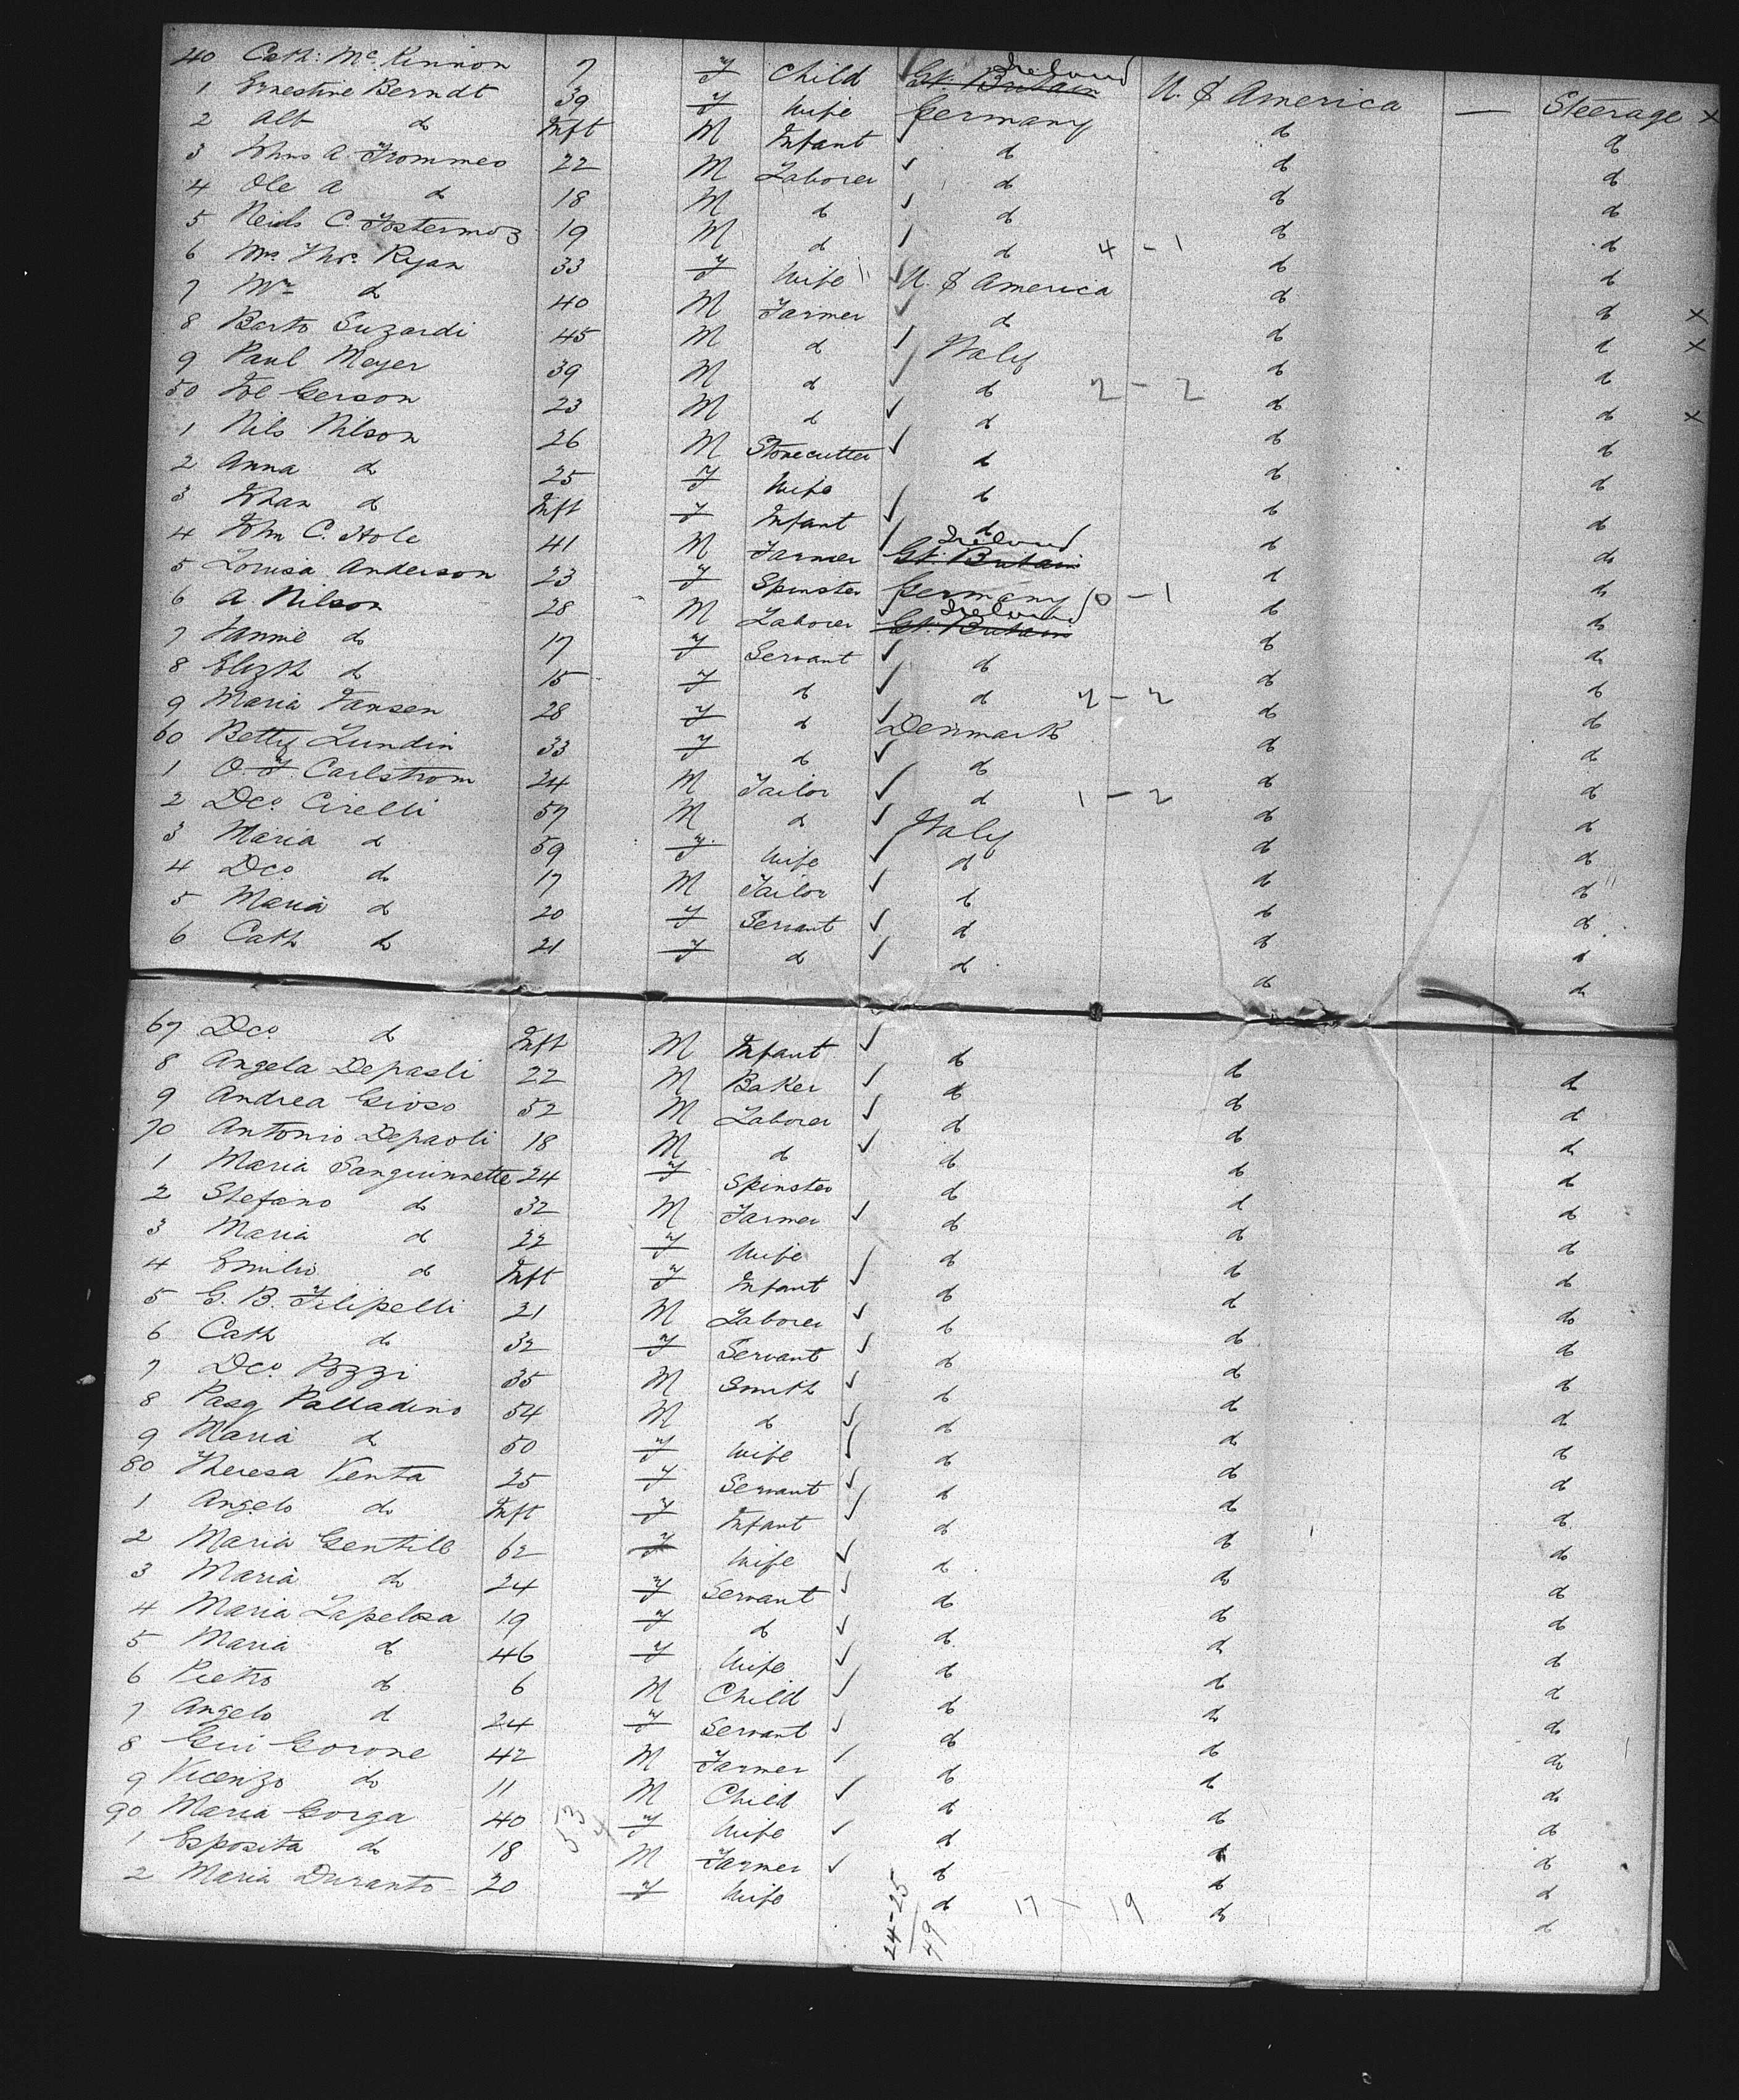 40 Cath: McKinnon 7 F Child Gt. Britain Ireland U. S America — Steerage x
1 Ernestine Berndt 39 F Wife Germany d d
2 Alb d Inft M Infant d d d
3 Johns A Frommeo 22 M Laborer d d d
4 Ole A d 18 M d d d d
5 C. 19 M d d 4 - 1 d d
6 Mrs Thos. Ryan 33 F Wife U. S America d d x
7 Mr d 40 M Farmer d d d x
8 Barto Suzardi 45 M d Italy d d
9 Paul Meyer 39 M d d 2 - 2 d d x
50 Joe Gerson 23 M d d d d
1 Nils Nilson 26 M Stonecutter d d d
2 Anna d 25 F Wife d d d
3 Johan d Inft F Infant d d d
4 John C. Hole 41 M Farmer Gt. Britain Ireland d do
5 Louisa Anderson 23 F Spinster Germany 0 - 1 d d
6 A. Nilson 28 M Laborer Gt. Britain Ireland d d
7 Jannie do 17 F Servant d d d
8 Elizth d 15 F d d 2 - 2 d d
9 Maria Jansen 28 F d Denmark d d
60 Betty Lundin 33 F d d d d
1 O. F. Carlstrom 24 M Tailor d 1 - 2 d d
2 Dco. Cirelli 57 M d Italy d d
3 Maria d 59 F Wife d d d
4 Dco d 17 M Tailor d d d
5 Maria d 20 F Servant d d d
6 Cath d 21 F d d d d
67 Dco. d Inft M Infant d d d
8 Angela Depasli 22 M Baker d d d
9 Andrea Gioso 52 M Laborer d d d
70 Antonio Depaoli 18 M d d d d
1 Maria Sanguinnette 24 F Spinster d d d
2 Stefano d 32 M Farmer d d d
3 Maria d 22 F Wife d d d
4 Emilio d Inft F Infant d d do
5 G. B. Filipelli 21 M Laborer d d d
6 Cath d 32 F Servant d d d
7 Dco. Pozzi 35 M Smith d d d
8 Pasq Palladino 54 M d d d d
9 Maria d 50 F Wife d d d
80 Theresa Venta 25 F Servant d d d
1 Angelo do Inft F Infant d d do
2 Maria Gentile 62 F Wife d d d
3 Maria do 24 F Servant d d d
4 Maria Lapelosa 19 F d d d d
5 Maria d 46 F Wife d d d
6 Pietro d 6 M Child d d d
7 Angelo d 24 F Servant d d do
8 Gui Gorone 42 M Farmer d d d
9 Vicenzo do 11 M Child d d d
90 Maria Gorga 40 F Wife d d d
1 Esposita do 18 M Farmer d d d
2 Maria Duranto 20 F Wife d 17 - 19 d d
53
4
24-25
49